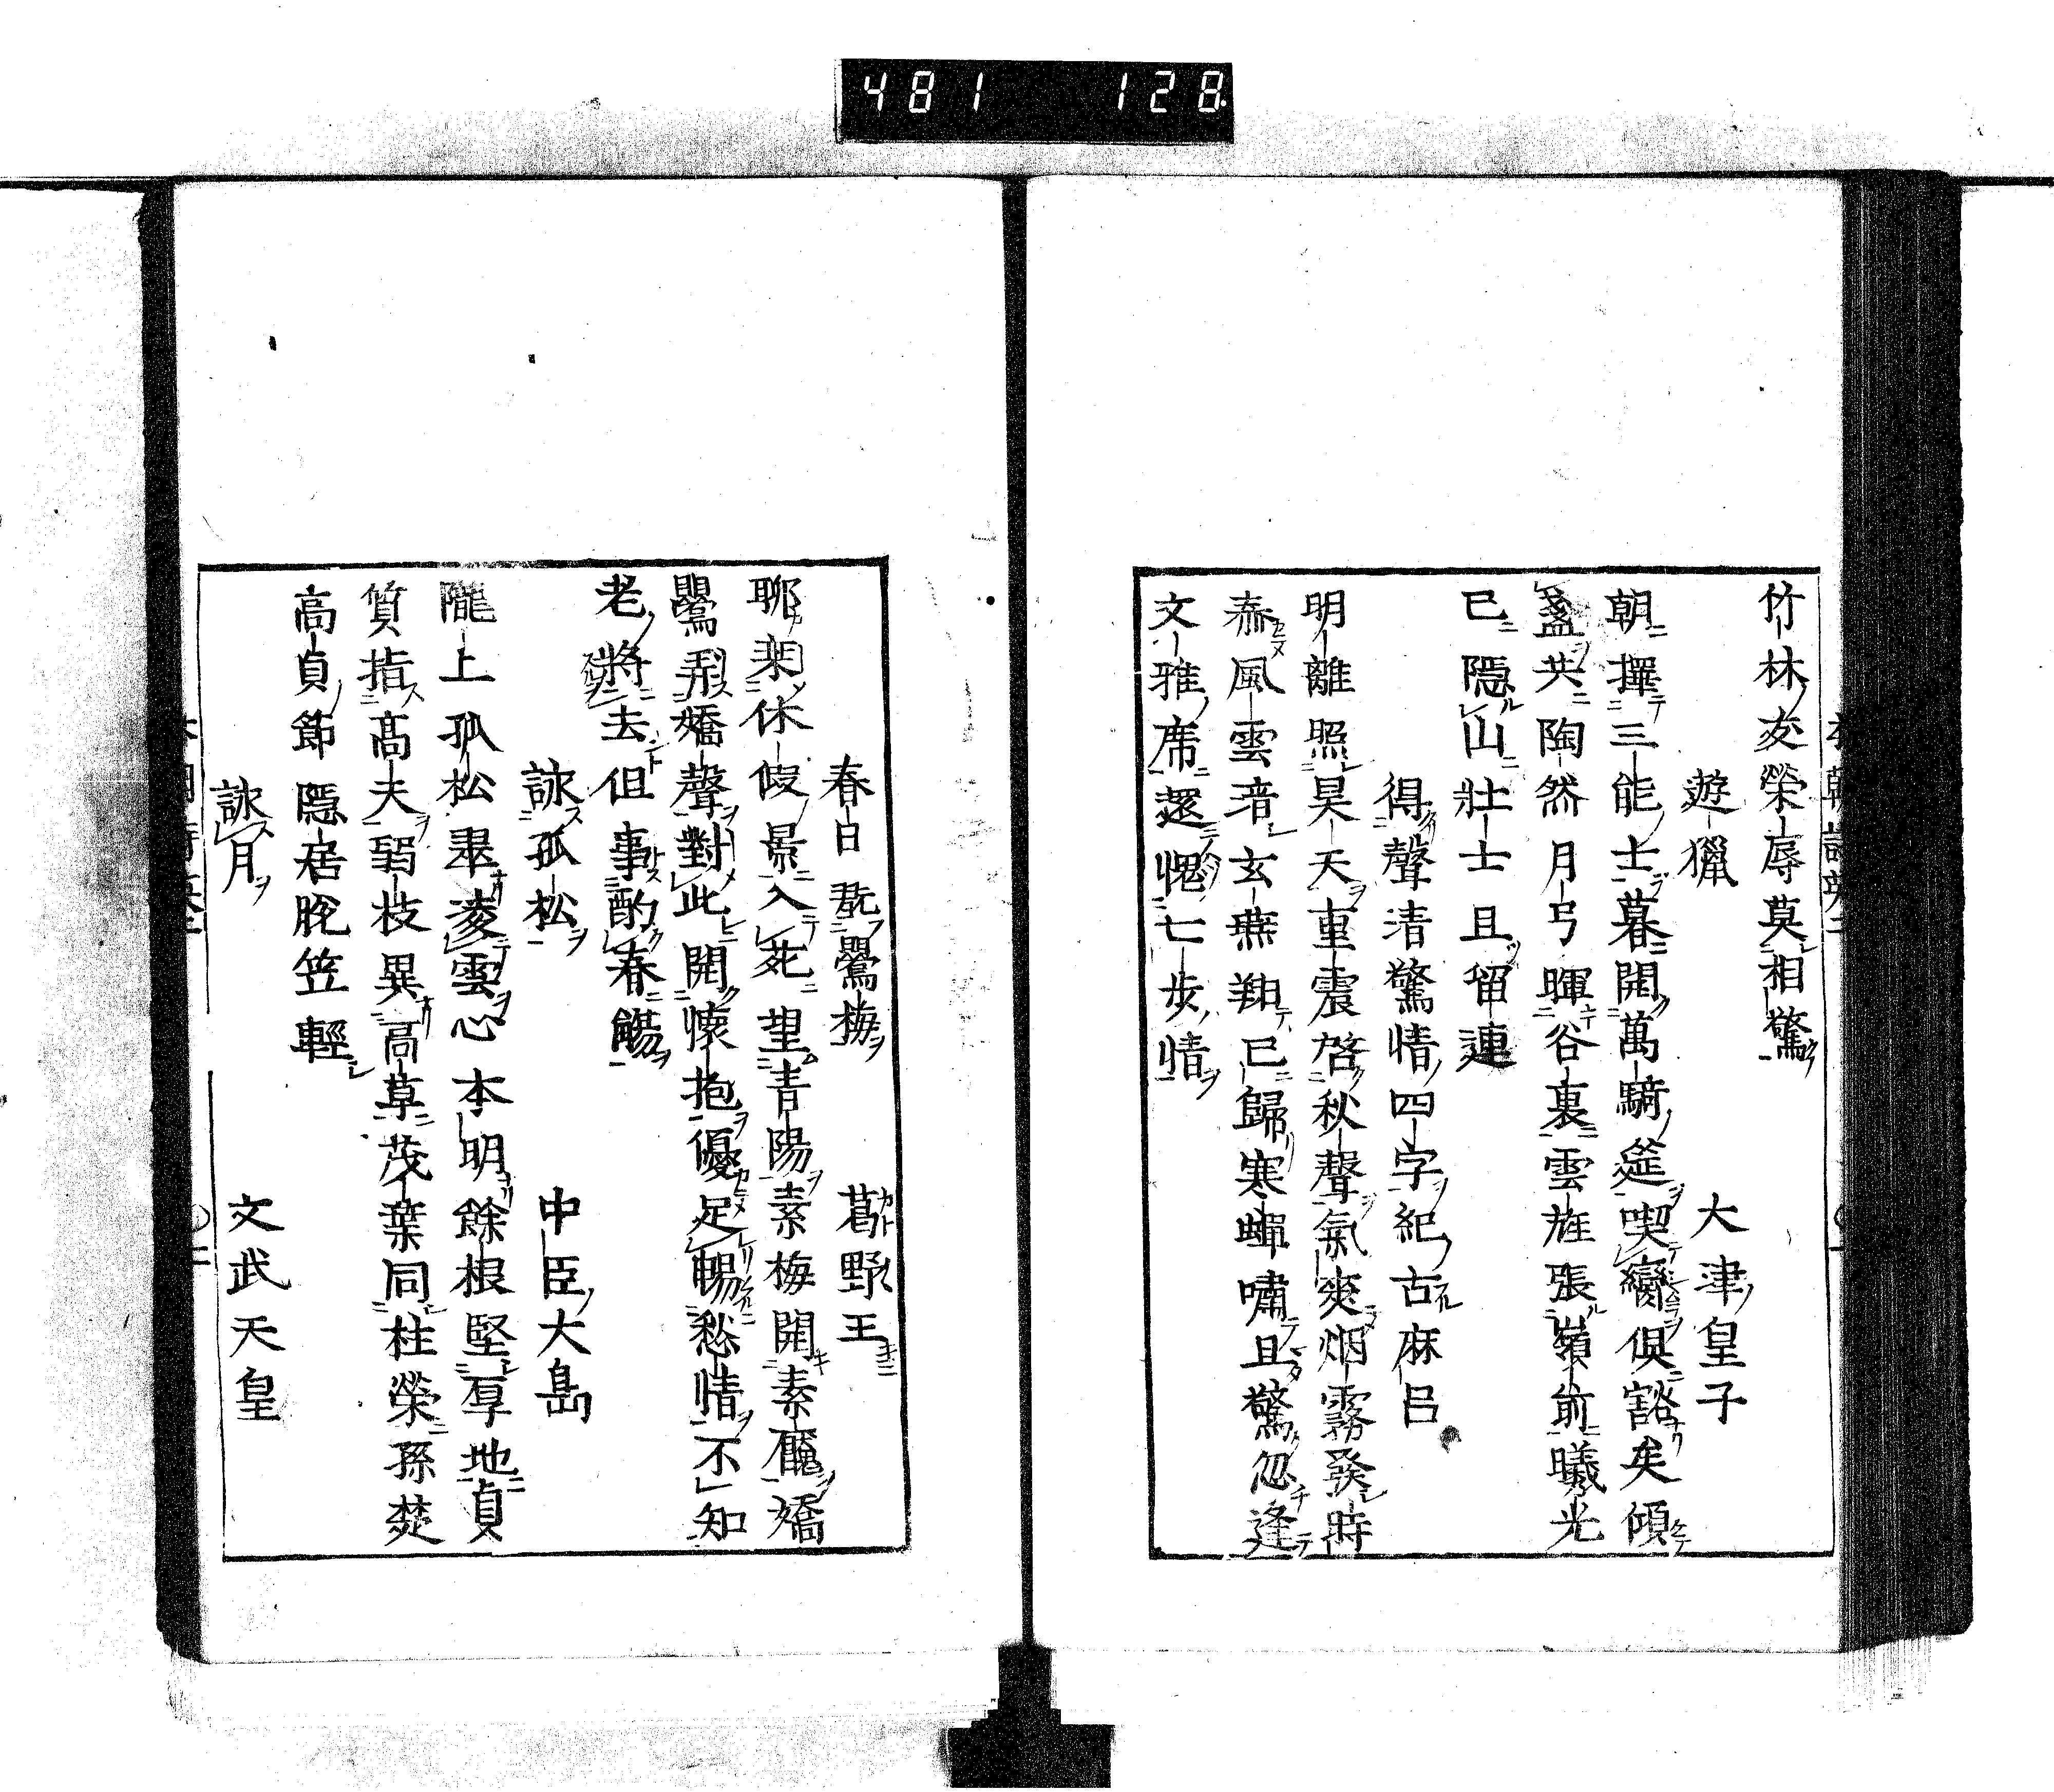 481 128
竹林友榮辱莫相驚
遊獵 大津皇子
朝擇三能士暮開萬騎筵喫臠俱豁矣傾
盞共陶然月弓暉谷裏雲旌張嶺前曦光
已隱山壯士且留連
得聲清驚情四字紀古麻呂
明離照昊天重震啓秋聲氣爽烟霧發時
泰風雲清玄燕翔已歸寒蟬嘯且驚忽逢
文雅席還愧七步情
春日翫鶯梅 葛野王
聊乗休假景入苑望青陽素梅開素靨嬌
鶯弄嬌聲對此開懷抱優足暢愁情不知
老將去但事酌春觴
詠孤松 中臣大島
隴上孤松翠凌雲心本明餘根堅厚地貞
質指高天弱枝異高草茂葉同桂榮孫楚
高貞節隱居脫笠輕
詠月 文武天皇